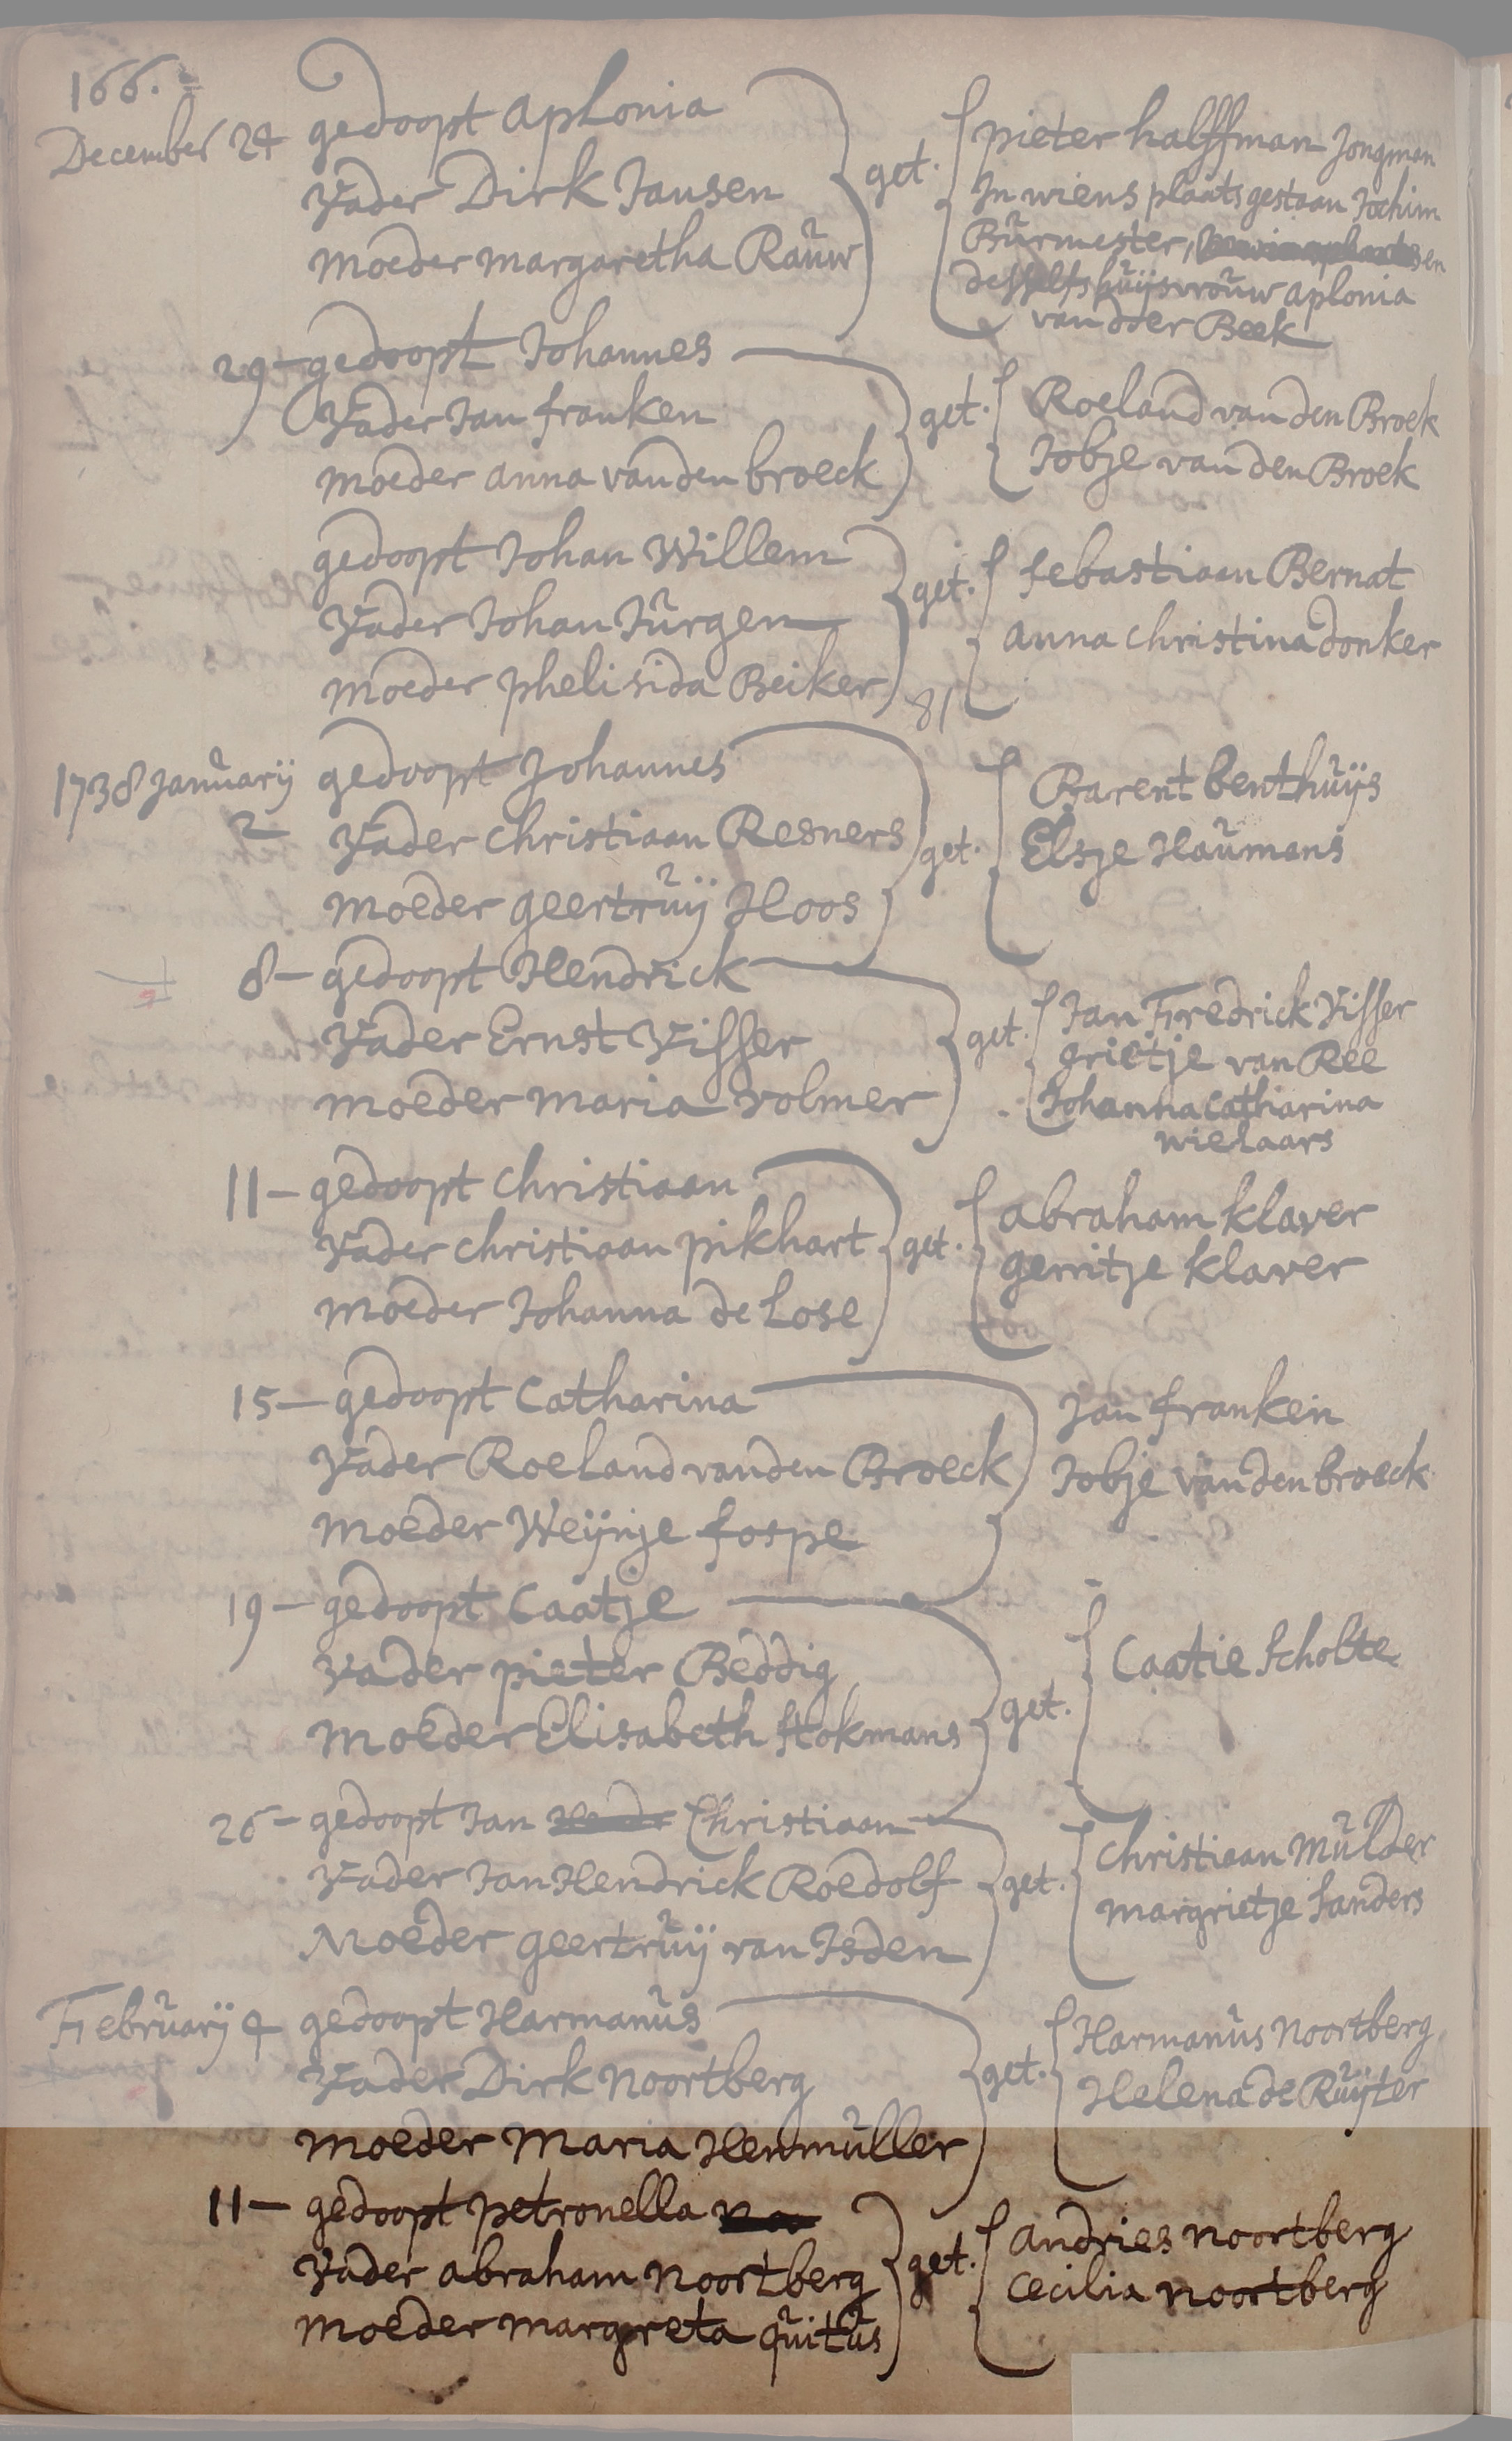 166.
December 24 gedoopt aplonia
Vader Dirk Jansen
moeder margaretha Rauw
get.
pieter halffman Jongman
In wiens plaats gestaan Jochim
Burmester,
desselfs huijsvrouw aplonia
van dder Beek
29- gedoopt Johannes
Vader Jan franken
moeder anna vanden broeck
get.
Roeland van den Broek
Jobje van den Broek
gedoopt Johan Willem
Vader Johan Jurgen
moeder phelisida Beiker
get.
sebastiaen Bernat
anna christina donker
81
1738 Januarij gedoopt Johannes
2 Vader christiaan Resners
moeder geertruij Hoos
get.
Barent benthuijs
Elsje Haumans
8- gedoopt Hendrick
Vader Ernst Visser
moeder maria volmer
get.
Jan Fredrick Visser
grietje van Ree
Johanna catharina
wielaars
11- gedoopt christiaan
Vader christiaan pikhart
moeder Johanna de Lose
get.
abraham klaver
gerritje klaver
15- gedoopt Catharina
Vader Roeland vanden Broeck
moeder Weijnje fospe
Jan franken
Jobje vanden broeck
19- gedoopt Caatje
Vader pieter Beddig
moeder Elisabeth Stokmans
get.
Caatie Scholte
26- gedoopt Jan Christiaan
Vader Jan Hendrick Roedolf
Moeder geertruij van Isden
get.
christiaan Mulder
margrietje Sanders
February 4 gedoopt Harmanus
Vader Dirk noortberg
moeder Maria Henmuller
get.
Harmanus noortberg
Helena de Ruijter
11- gedoopt petronella
Vader abraham noortberg
moeder margreta quitus
get.
andries noortberg
Cecilia noortberg